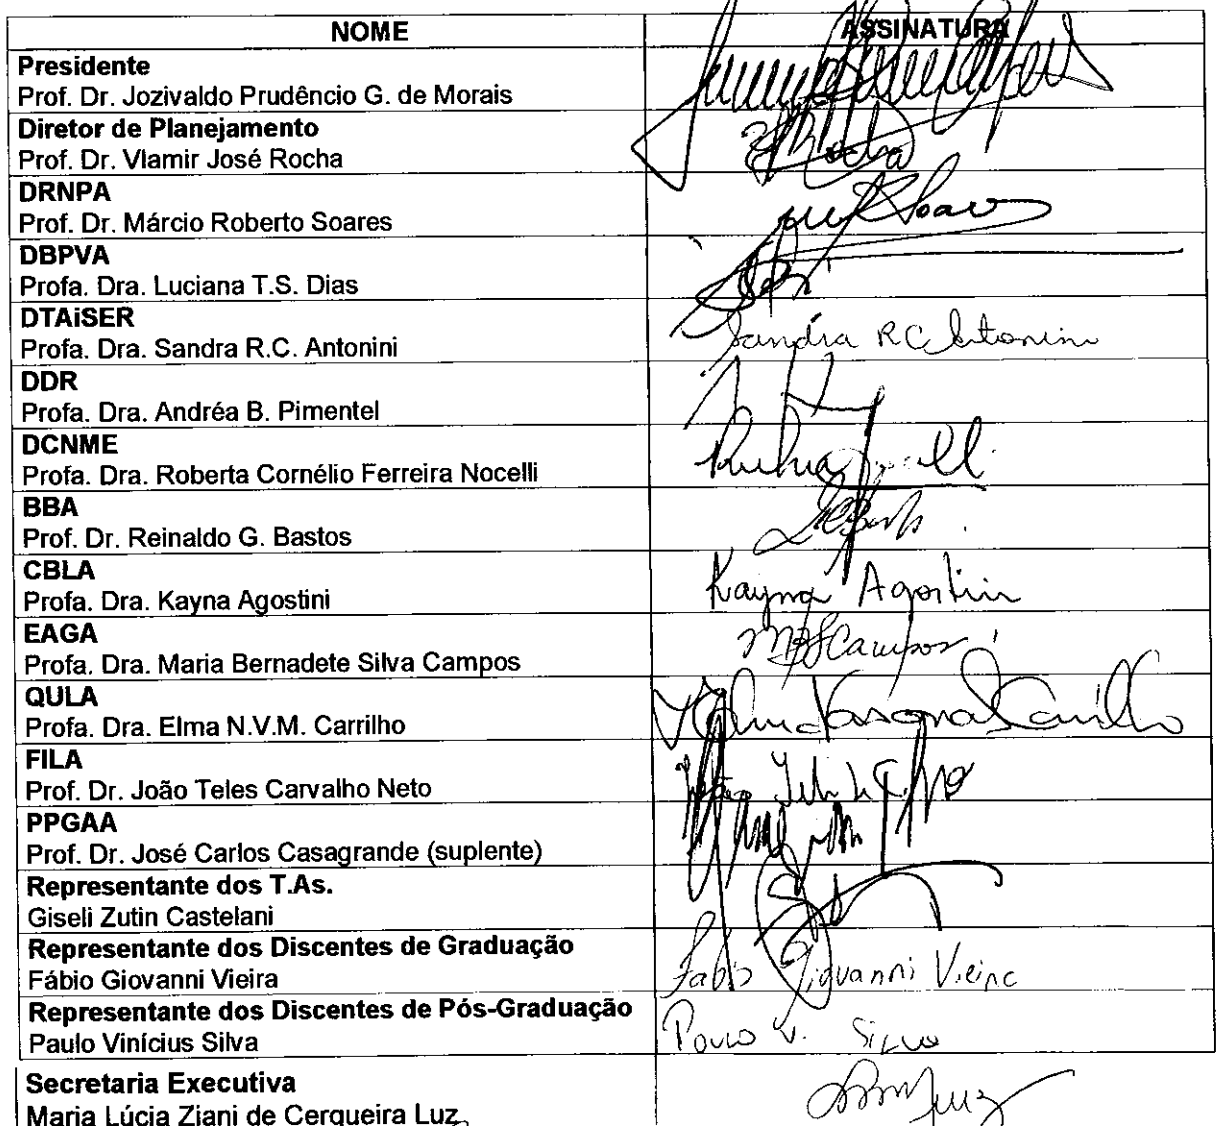 NOME ASSINATURA
Presidente
Prof. Dr. Jozivaldo Prudêncio G. de Morais
Diretor de Planejamento
Prof. Dr. Vlamir José Rocha
Rocha
DRNPA
Prof. Dr. Márcio Roberto Soares
Soares
DBPVA
Profa. Dra. Luciana T.S. Dias
DTAiSER
Profa. Dra. Sandra R.C. Antonini
Sandra R C Antonini
DDR
Profa. Dra. Andréa B. Pimentel
DCNME
Profa. Dra. Roberta Cornélio Ferreira Nocelli
BBA
Prof. Dr. Reinaldo G. Bastos
CBLA
Profa. Dra. Kayna Agostini
Kayna Agostini
EAGA
Profa. Dra. Maria Bernadete Silva Campos
MBSCampos
QULA
Profa. Dra. Elma N.V.M. Carrilho
Carrilho
FILA
Prof. Dr. João Teles Carvalho Neto
João
PPGAA
Prof. Dr. José Carlos Casagrande (suplente)
Representante dos T.As.
Giseli Zutin Castelani
Representante dos Discentes de Graduação
Fábio Giovanni Vieira
Fabio Giovanni Vieira
Representante dos Discentes de Pós-Graduação
Paulo Vinícius Silva
Paulo V. Silva
Secretaria Executiva
Maria Lúcia Ziani de Cerqueira Luz